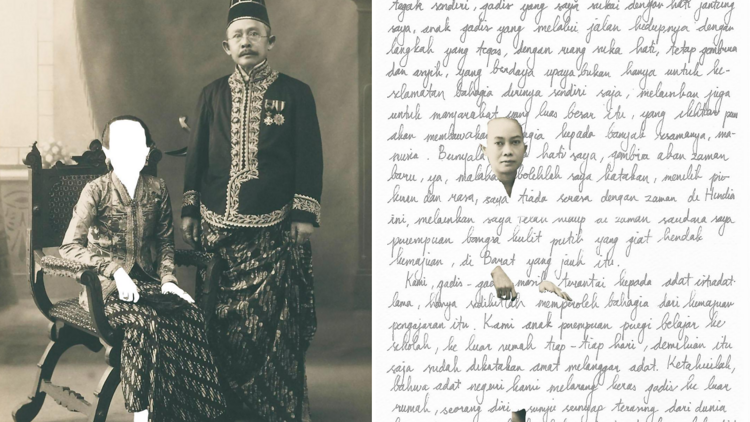 tegak sendiri, gadis yang saya sukai dengan hati jantung
saya, anak gadis yang melalui jalan hidupnya dengan
langkah yang tegas, dengan riang suka hati, tetap gembira
dan asyik, yang berdaya upaya bukan hanya untuk ke-
selamatan bahagia dirinya sendiri saja, melainkan juga
untuk masyarakat yang luas besar itu, yang ikhtiar pun
akan membawa bahagia kepada banyak sesamanya, ma-
nusia. Bunyala hati saya, gembira akan zaman
baru, ya, malahan bolehlah saya katakan, menilik pi-
kiran dan rasa, saya tiada serasa dengan zaman di Hindia
ini, melainkan saya zaman saudara saya
perempuan bangsa kulit putih yang giat hendak
kemajuan, di Barat yang jauh itu.
Kami, gadis-gad masih terantai kepada adat istiadat
lama, hanya sedikitlah memperoleh bahagia dari kemajuan
pengajaran itu. Kami anak perempuan pergi belajar ke
sekolah, ke luar rumah tiap-tiap hari, demikian itu
saja sudah dikatakan amat melanggar adat. Ketahuilah,
bahwa adat negeri kami melarang keras gadis ke luar
rumah, seorang diri sunyi senyap terasing dari dunia